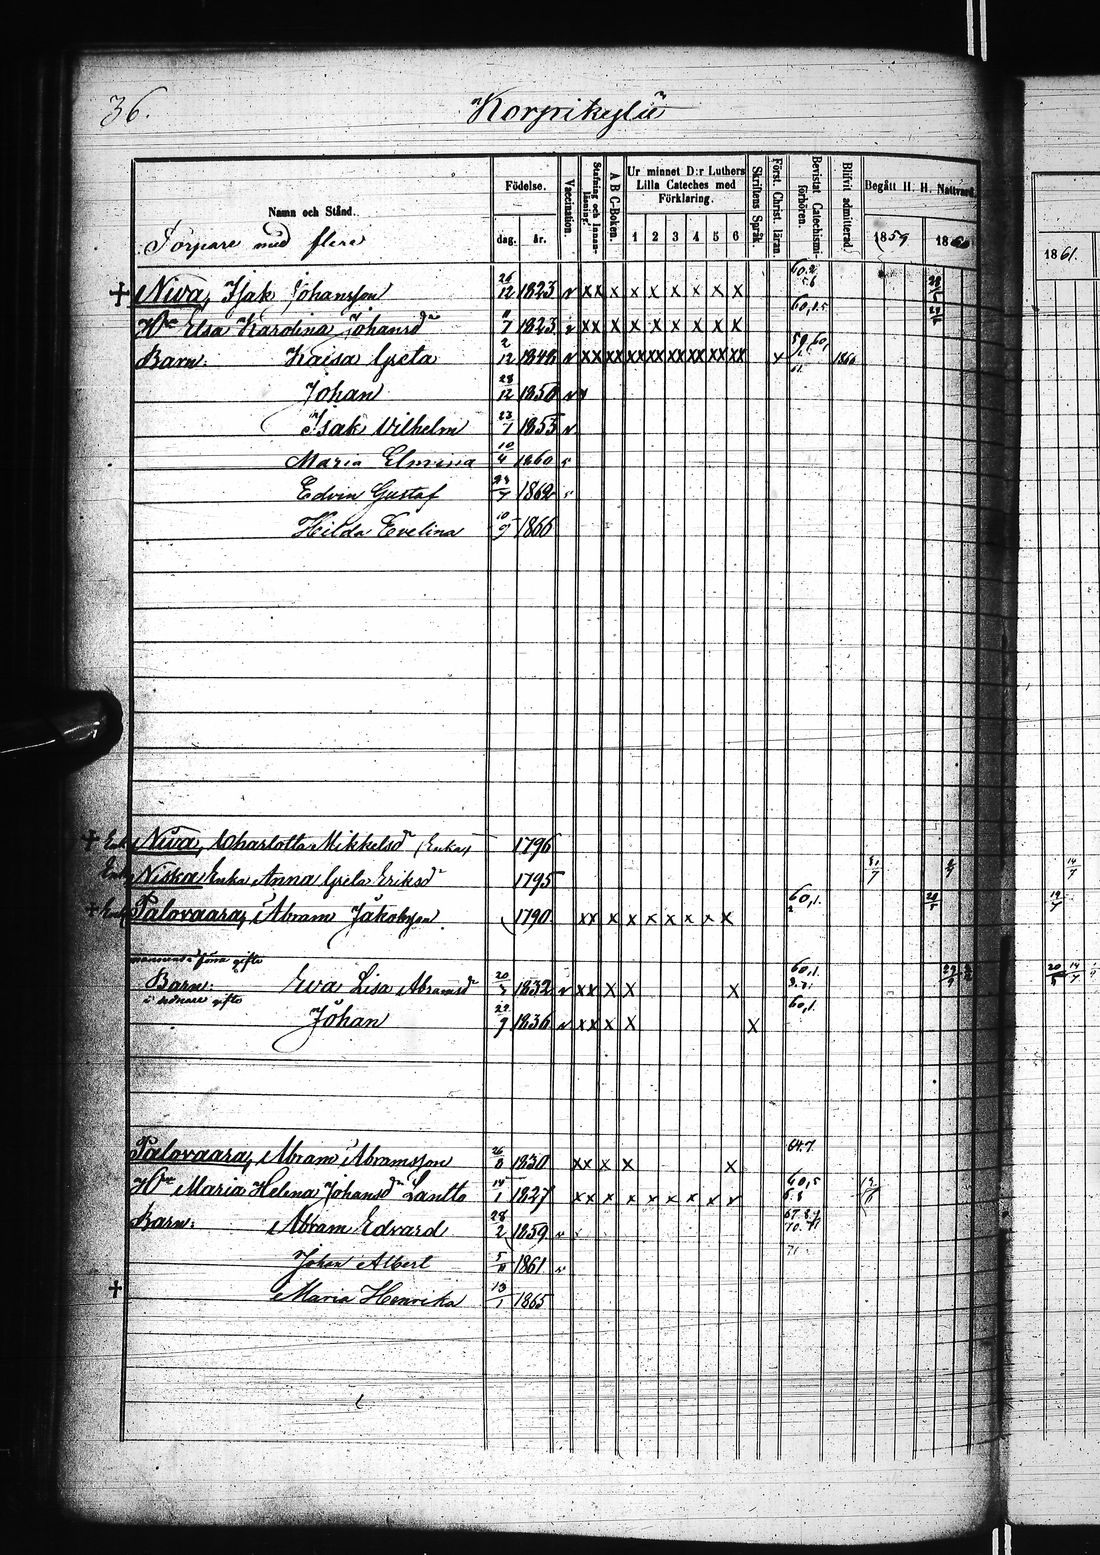 36.
"Korpikylä"
Namn och Stånd.
Torpare med flere
Födelse.
dag. år.
Vaccination.
Stafning och Innanläsning.
A B C-Boken.
Ur minnet D:r Luthers Lilla Cateches med Förklaring.
1 2 3 4 5 6
Skriftens Språk.
Först. Christ. läran.
Bevistat Catechismi-förhören.
Blifvit admitterad.
Begått H. H. Nattvard.
1859 1860
1861.
+ Niva, Isak Johansson 26/12 1823 v xx x x x x x x x 60,2
Hu Elsa Karolina Johansdr 1823 v xx x x x x x x x 60,1.5
Barn: Kaisa Greta 2/12 1848 v xx xx xx xx xx xx xx xx 59,60, 61. 1860
Johan 28/12 1850 v
Isak Vilhelm 23/7 1855 v
Maria Elmina 10/4 1860
Edvin Gustaf 1862
Hilda Evelina 10/9 1866
+ Enka Niva, Charlotta Mikkelsdr (Enka) 1796
Enka Niska Enka Anna Greta Eriksdr 1795
+ Palovaara, Abram Jakobsson 1790 xx x x x x x x x 60,1.
förra gifte
Barn: Eva Lisa Abramsdr 1832 v xx x x x 60,1.
i sednare gifte
Johan 1836 v xx x x x 60,1.
Palovaara, Abram Abramsson 26/8 1830 xx x x x 64.7.
Hu Maria Helena Johansdr Lantto 14/1 1827 xx x x x x x x x 60,5
Barn: Abram Edvard 28/2 1859 v 70. 71
Johan Albert 1861 71
+ Maria Henrika 13/1 1865